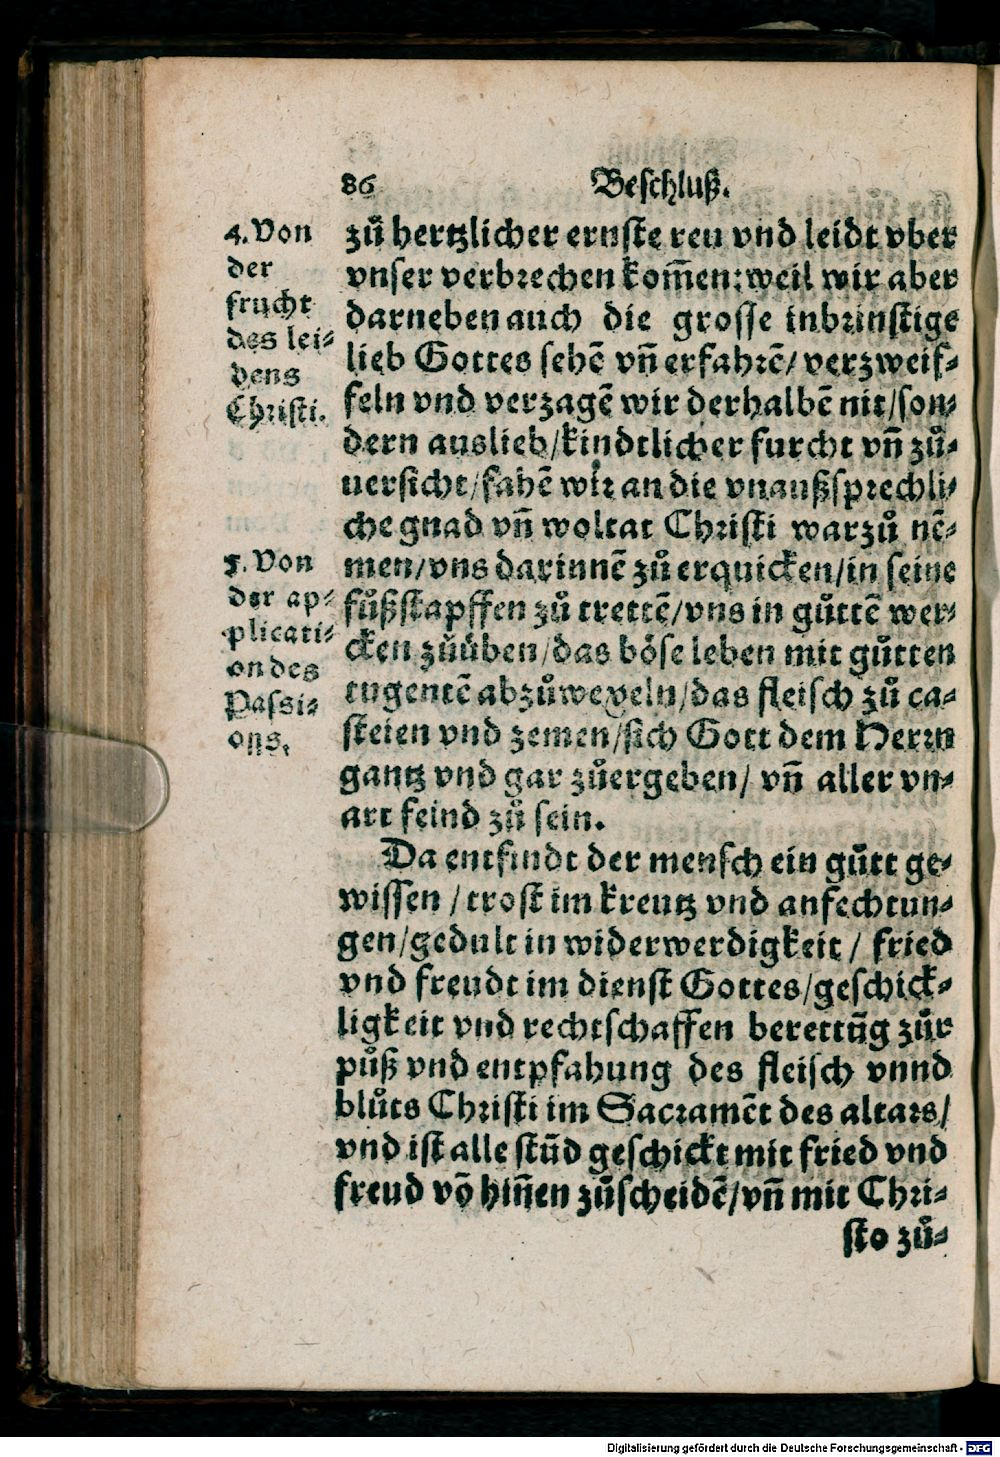 86 Beschluß.
4. Von
der
frucht
des lei⸗
dens
Christi.
5. Von
der ap⸗
plicati⸗
on des
Passi⸗
ons.
zů hertzlicher ernste reu vnd leidt vber
vnser verbrechen kom̄en: weil wir aber
darneben auch die grosse inbrinstige
lieb Gottes sehē vn̄ erfahrē/ verzweif⸗
feln vnd verzagē wir derhalbē nit/ son⸗
dern auslieb/ kindtlicher furcht vn̄ zů⸗
uersicht/ fahē wir an die vnaußsprechli⸗
che gnad vn̄ woltat Christi warzů nē⸗
men/ vns darinnē zů erquicken/ in seine
fůßstapffen zů trettē/ vns in gůttē wer⸗
cken zůůben/ das böse leben mit gůtten
tugentē abzůwexeln/ das fleisch zů ca⸗
steien vnd zemen/ sich Gott dem Herrn
gantz vnd gar zůergeben/ vn̄ aller vn⸗
art feind zů sein.
Da entfindt der mensch ein gůtt ge⸗
wissen/ trost im kreutz vnd anfechtun⸗
gen/ gedult in widerwerdigkeit/ fried
vnd freudt im dienst Gottes/ geschick⸗
ligkeit vnd rechtschaffen berettūg zůr
půß vnd entpfahung des fleisch vnnd
blůts Christi im Sacramēt des altars/
vnd ist alle stūd geschickt mit fried vnd
freud vō hin̄en zůscheidē/ vn̄ mit Chri⸗
sto zů⸗
Digitalisierung gefördert durch die Deutsche Forschungsgemeinschaft - DFG